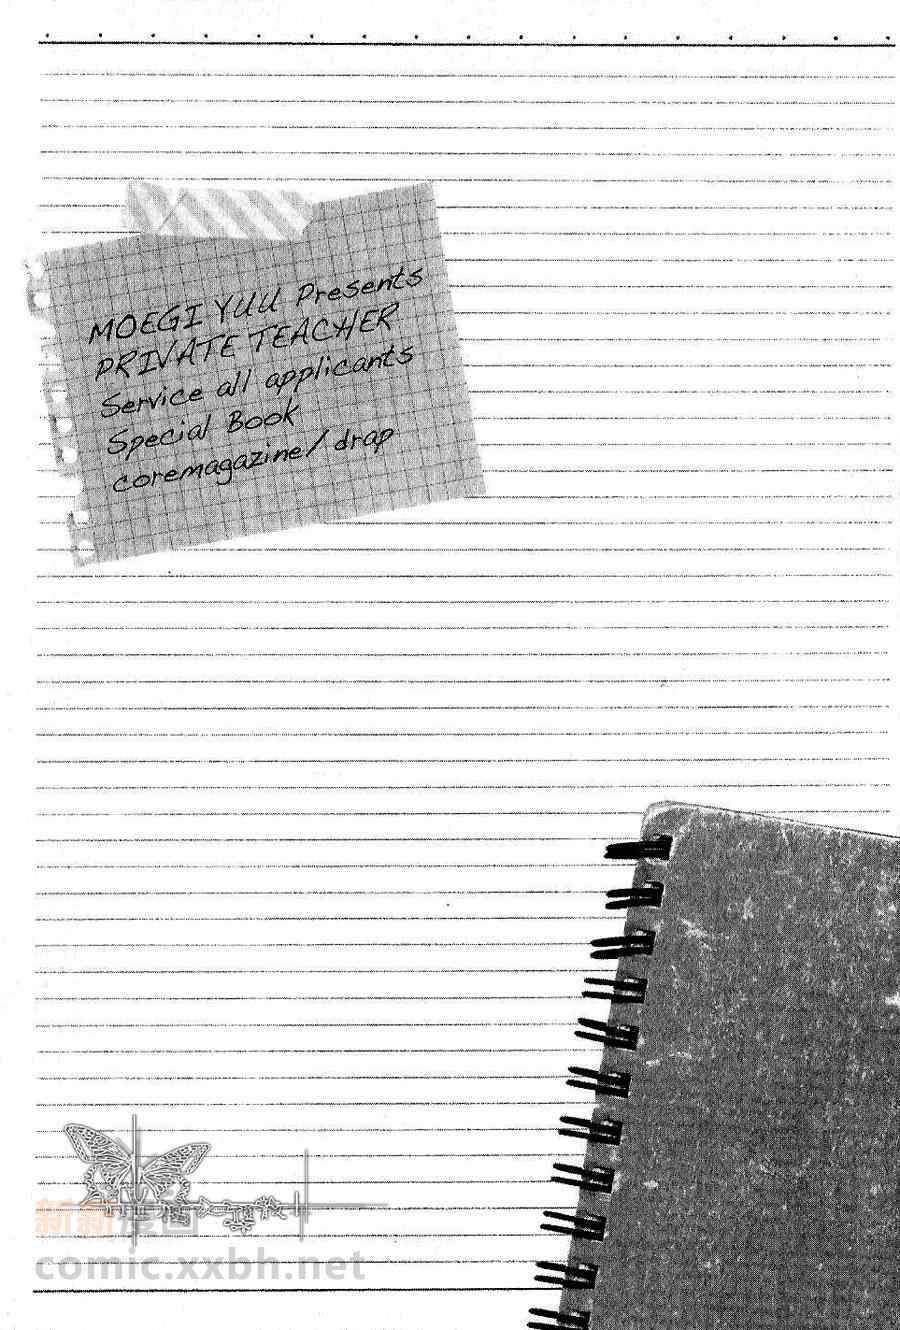 MOEGI YUU Presents
PRIVATE TEACHER
Service all applicants
Special Book
coremagazine/ drap
新新漫画
comic.xxbh.net